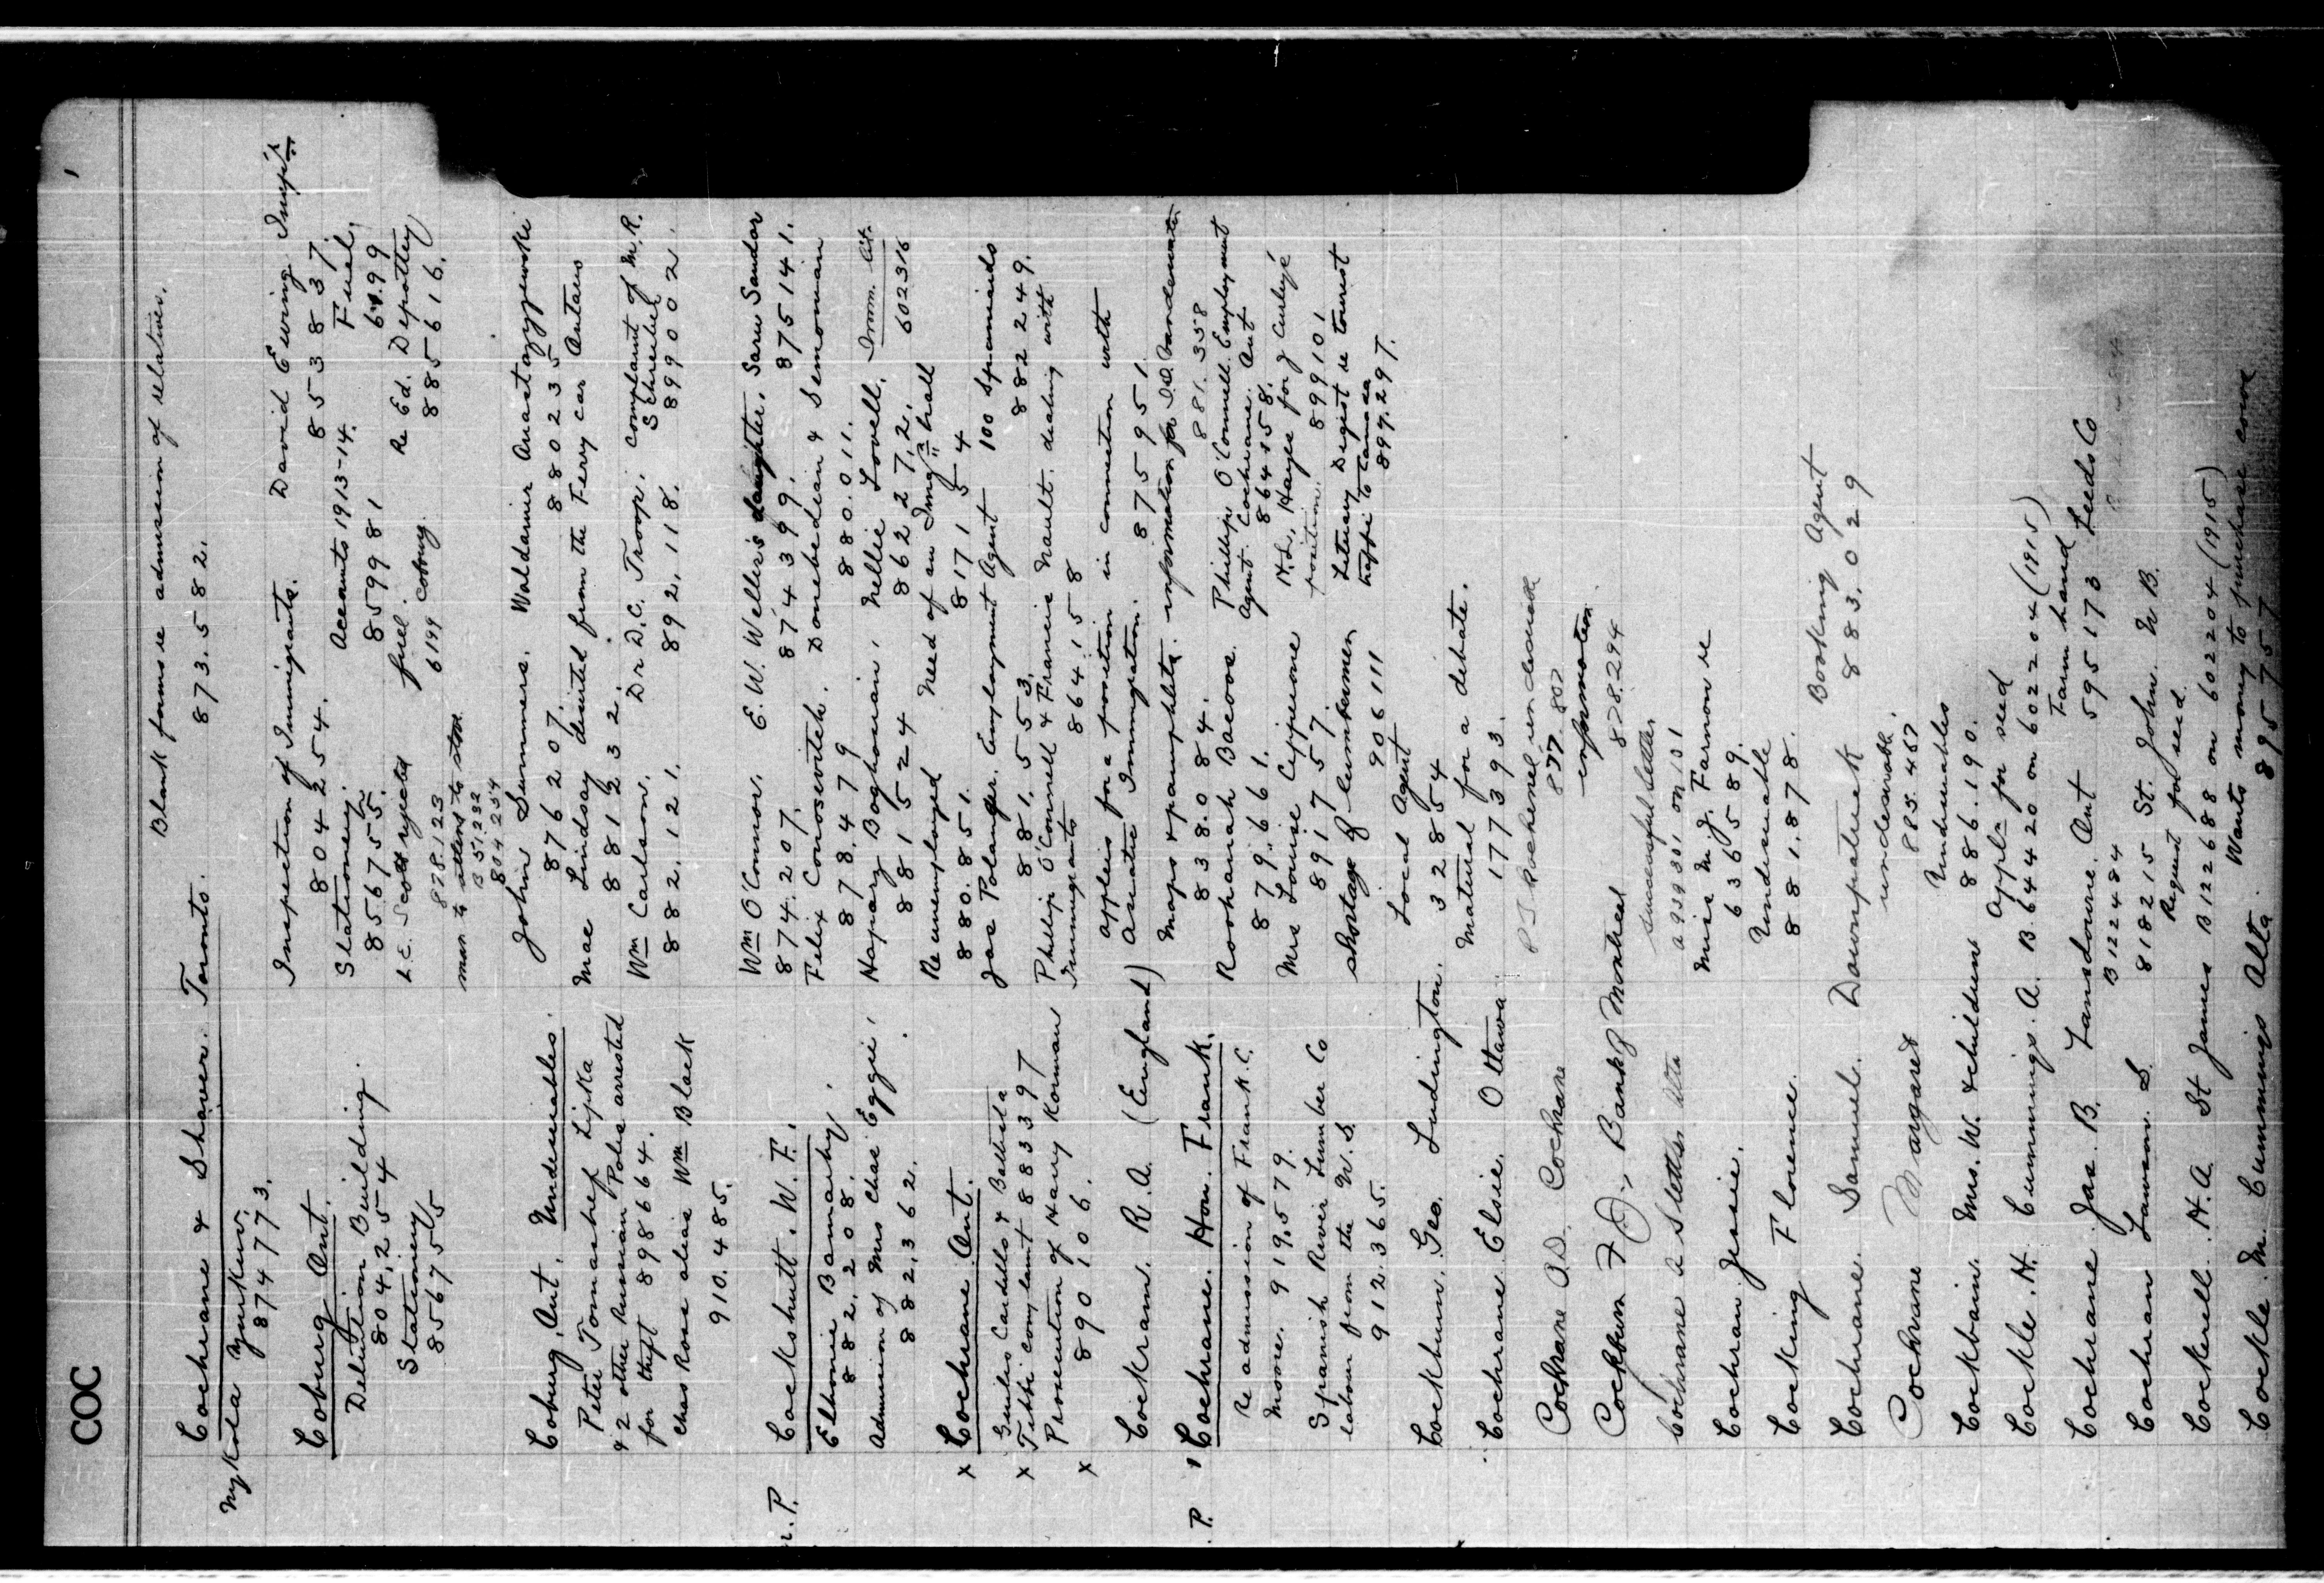 COC
Cochrane & Shaver. Toronto. Blank forms re admission of relatives.
Mykola Yurkiw. 873.582.
874773.
Coburg Ont. Inspection of Immigrants. David Ewing Insp'r
Detention Building. 804254. 853837.
804,254 Stationery. Accounts 1913-14. Fuel.
Stationery 856755. 859981 6199
856755 L.E. Scott rejected fuel. Re Ed. Depottey
878.123 6199 Coburg. 885616.
man & attend to stoa
B 51.232
804254
Coburg, Ont. Undesirables. John Summers. Waldamir Anastazzewski
876207. 880235
Peter Tomashef Lipka Mae Lindsay deserted from the Ferry car Ontario
& 2 other Russian Poles arrested 881232.
for theft 898664. Wm Carlson. Dr D.C. Troop. Complaint of M.R. Schreiber
Chas Rose alias Wm Black 882,121. 892,118. 899002.
910.485.
M.P. Cockshutt. W.F. Wm O'Connor. E.W. Weller's daughter. Saru Sandor
874.207. 874399. 875141.
Elbonie Bamaby. Felix Conosevitch. Donebedian & Semonian
882.208. 878.479 880.011.
Admission of Mrs Chas Eggie. Haparz Boghosian. Nellie Lovell. Imm. Lit.
882,362. 881524 862272. 602316
Re unemployed Need of an Imgn hall
880.851. 817154
x Cochrane Ont. Jas Polanger. Employment Agent 100 Spaniards
881.553. 882249.
Smiles Cardello & Battista Phillip O'Connell & Francis Nault. dealing with
x Tibbi complaint 883397 Immigrants 864158
Prosecution of Harry Korman
x 890106.
Cockram. R.A. (England) applies for a position in connection with
Asiatic Immigration. 875951.
M.P. Cochrane. Hon. Frank. Maps & pamphlets. information for
838.084. 881.358
Re admission of Frank C. Roohanah Bacoos. Phillips O'Connell. Employment
Moore. 919.579. 879.661. Agent. Cochrane. Ont
864158.
Spanish River Lumber Co Mrs Louise Cyppione H.L. Hayes for
891757. position. 899101
labour from the U.S. shortage of lumbermen Literary Digest re tourist
912.365. 906111 traffic to Canada
897.297.
Cockburn. Geo. Ludington. Local Agent
32854
Cochrane Elsie. Ottawa. Material for a debate.
177393.
Cochrane A.D. Cochrane
877.802
Cockburn F.J., Bank of Montreal information
878.294
Cochrane a Stettler Alta successful settler
a 939301 on 101
Cochran Jessie. Miss M.J. Farmon re
636589.
Cocking Florence. Undesirable
881.878.
Cochrane. Samuel. Downpatrick Booking Agent
883.029
Cochrane Margaret undesirable.
885.457
Cockbain. Mrs. W. & children Undesirables
886.190.
Cockle. H. Cummings. A. Appln for seed
B.64420 on 602204 (1915)
Cochrane. Jas. B. Lansdowne. Ont Farm hand
B122484 595173 Leeds Co
Cochran Lawson. S. 818215 St. John. N.B.
Request for seed
Cockerell. H.A. St James B122688 on 602204 (1915)
Cockle. M. Cummings Alta. Wants money to purchase cows
895757